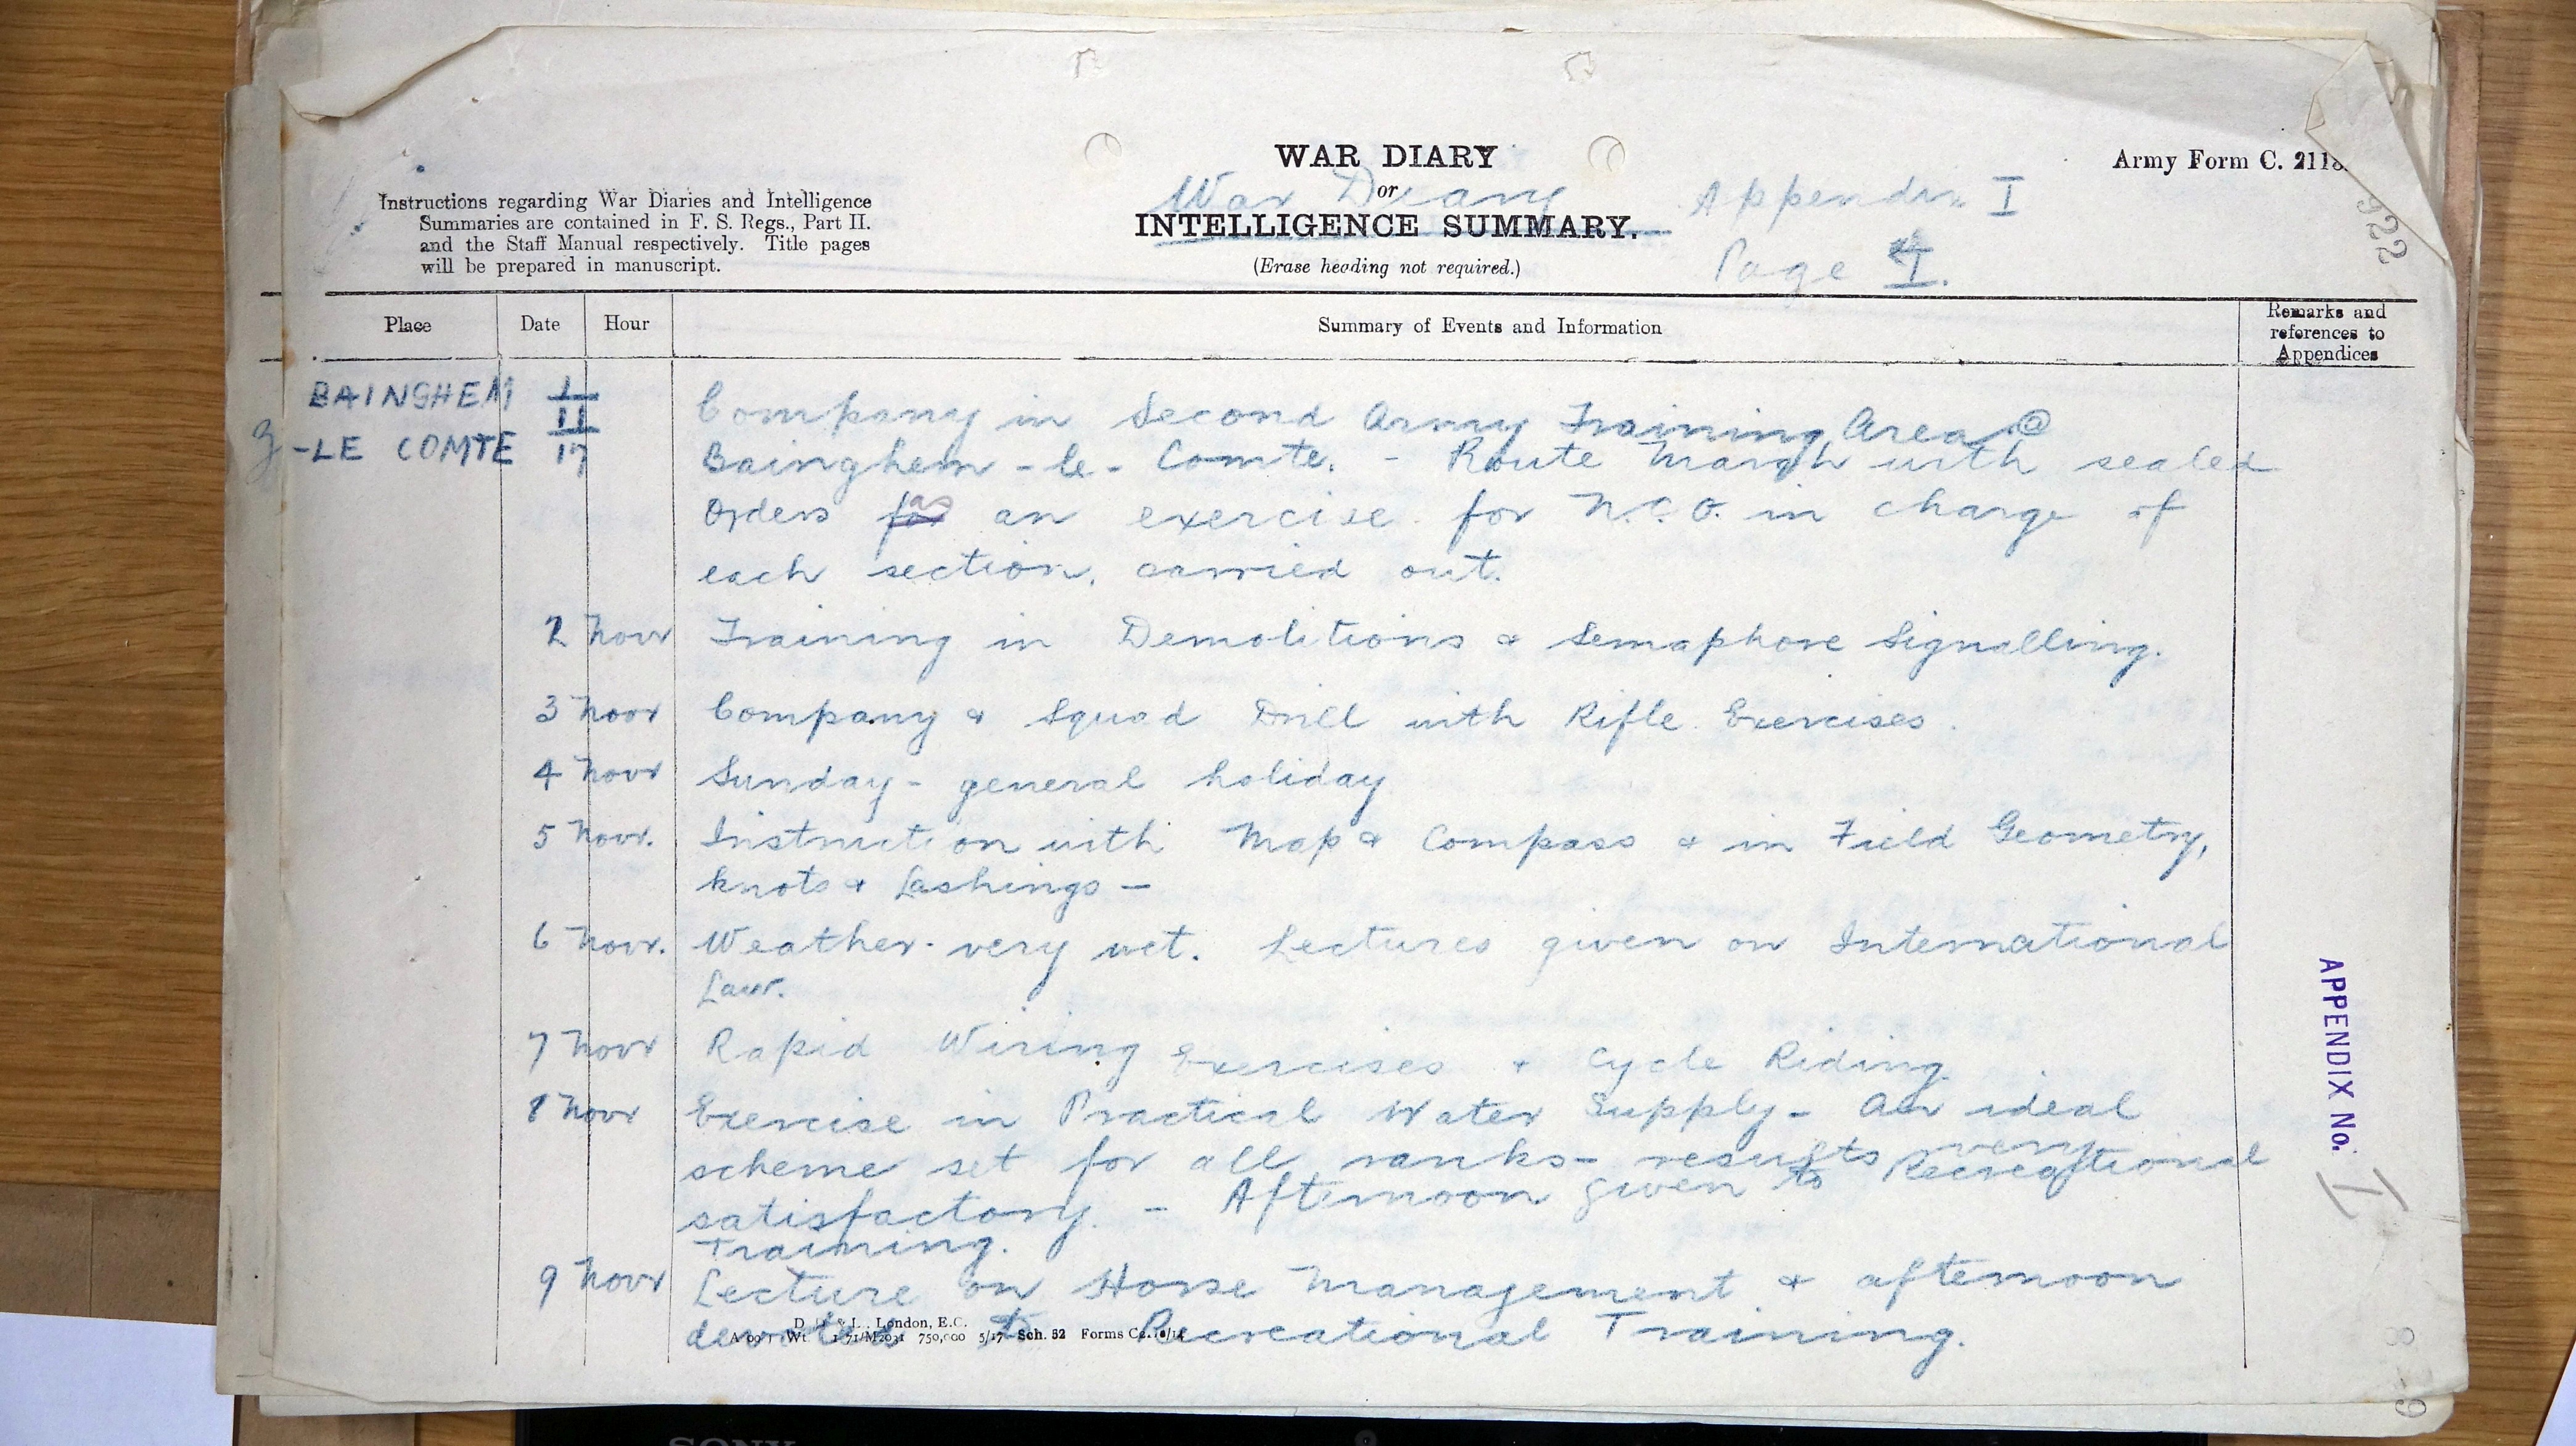 WAR DIARY
or
War Diary
INTELLIGENCE SUMMARY.
(Erase heading not required.)
Army Form C. 2118.
Appendix I
Page I.
922
Instructions regarding War Diaries and Intelligence
Summaries are contained in F. S. Regs., Part II.
and the Staff Manual respectively. Title pages
will be prepared in manuscript.
Place Date Hour Summary of Events and Information Remarks and
references to
Appendices
BAINGHEM 1/11/17 Company in Second Army Training Area @
-LE COMTE Bainghem-le-Comte. - Route March with sealed
Orders for as an exercise for N.C.O. in charge of
each section, carried out.
2 Novr Training in Demolitions & Semaphore Signalling.
3 Novr Company & Squad Drill with Rifle Exercises.
4 Novr Sunday - general holiday
5 Novr. Instruction with Map & Compass & in Field Geometry,
knots & Lashings -
6 Novr. Weather very wet. Lectures given on International
Law.
7 Novr Rapid Wiring Exercises & Cycle Riding.
8 Novr Exercise in Practical Water Supply - An ideal
scheme set for all ranks - results very
satisfactory. - Afternoon given to Recreational
Training.
9 Novr Lecture on Horse Management & afternoon
devoted to Recreational Training.
APPENDIX No. I
London, E.C.
750,000 5/17 Sch. 52 Forms
SONY